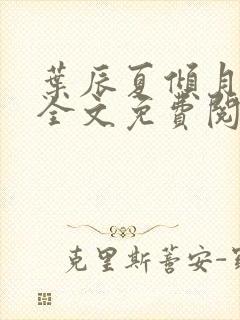 葉辰夏傾月
全文免費閱
克里斯蒂安-